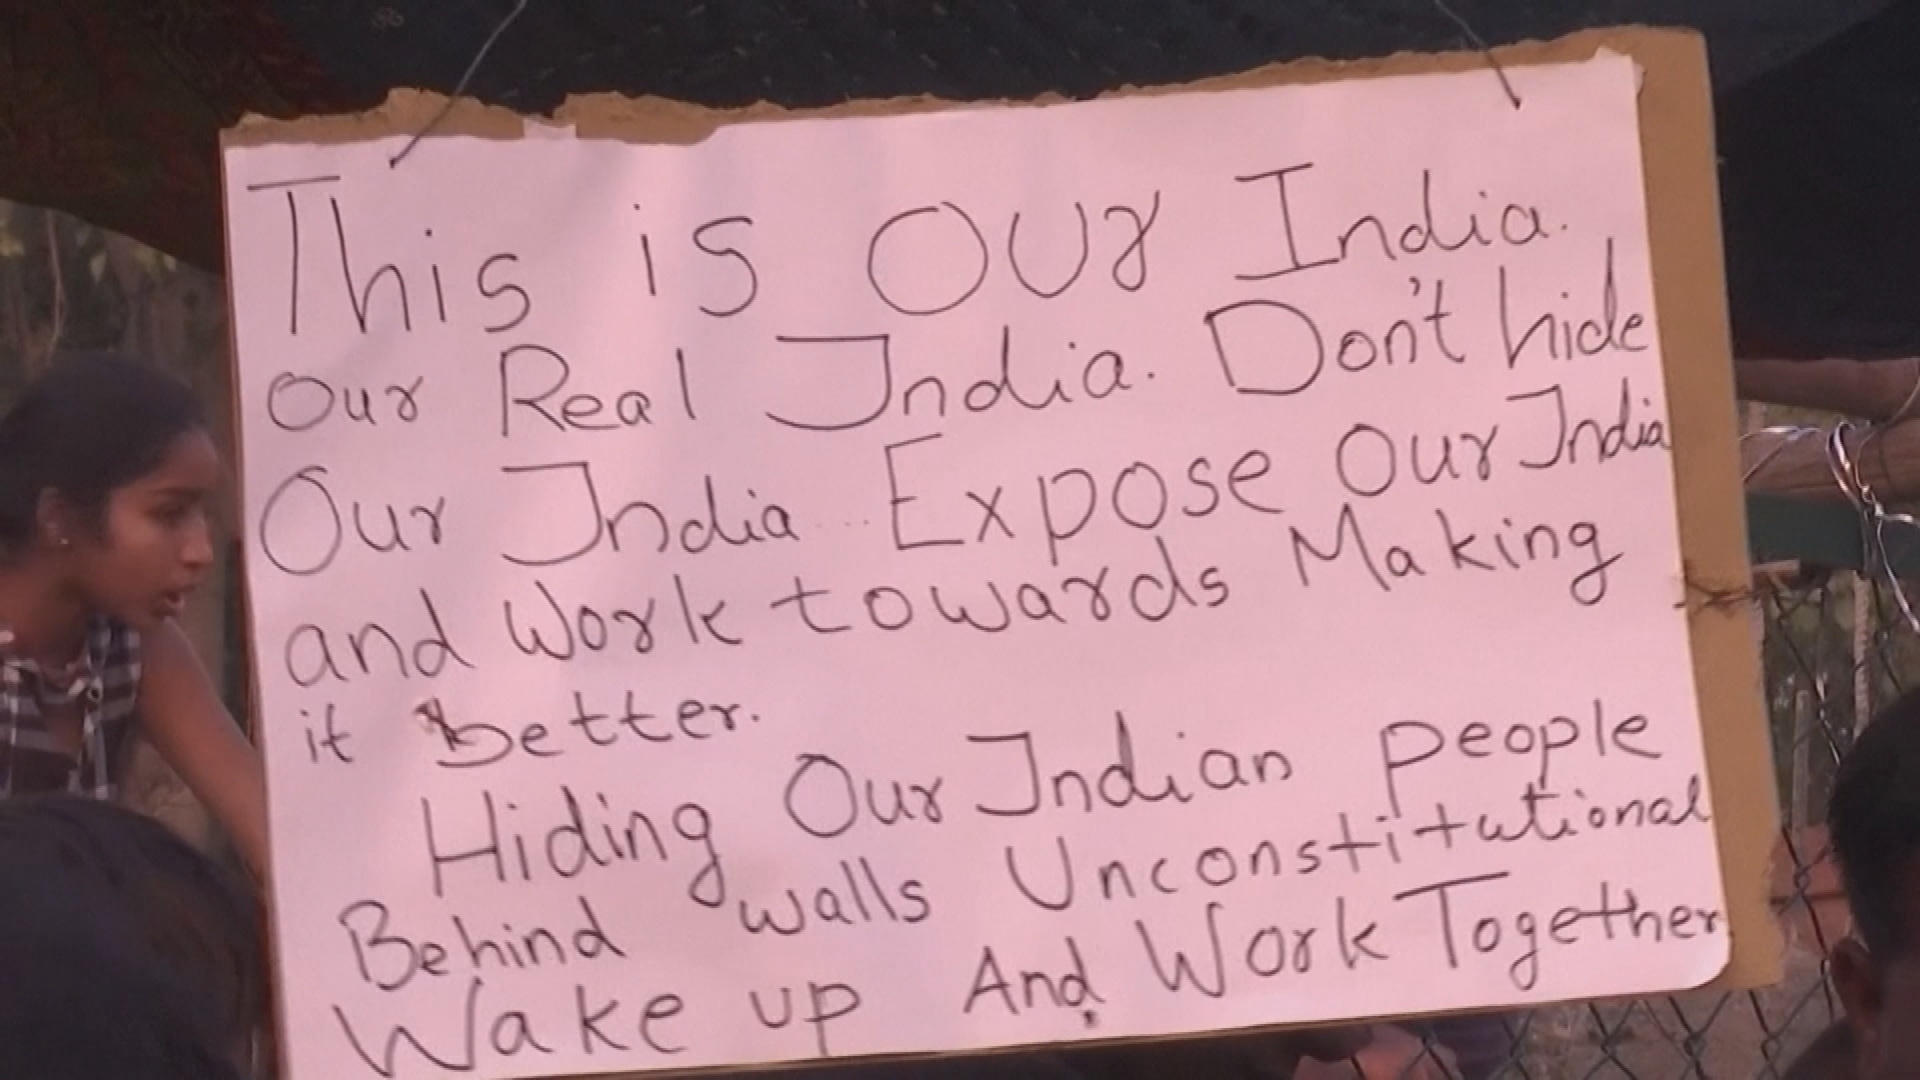 This is OUr India.
Our Real India. Don't hide
Our India... Expose Our India
and Work towards Making
it Better.
Hiding Our Indian People
Behind walls Unconstitutional
Wake up And Work Together